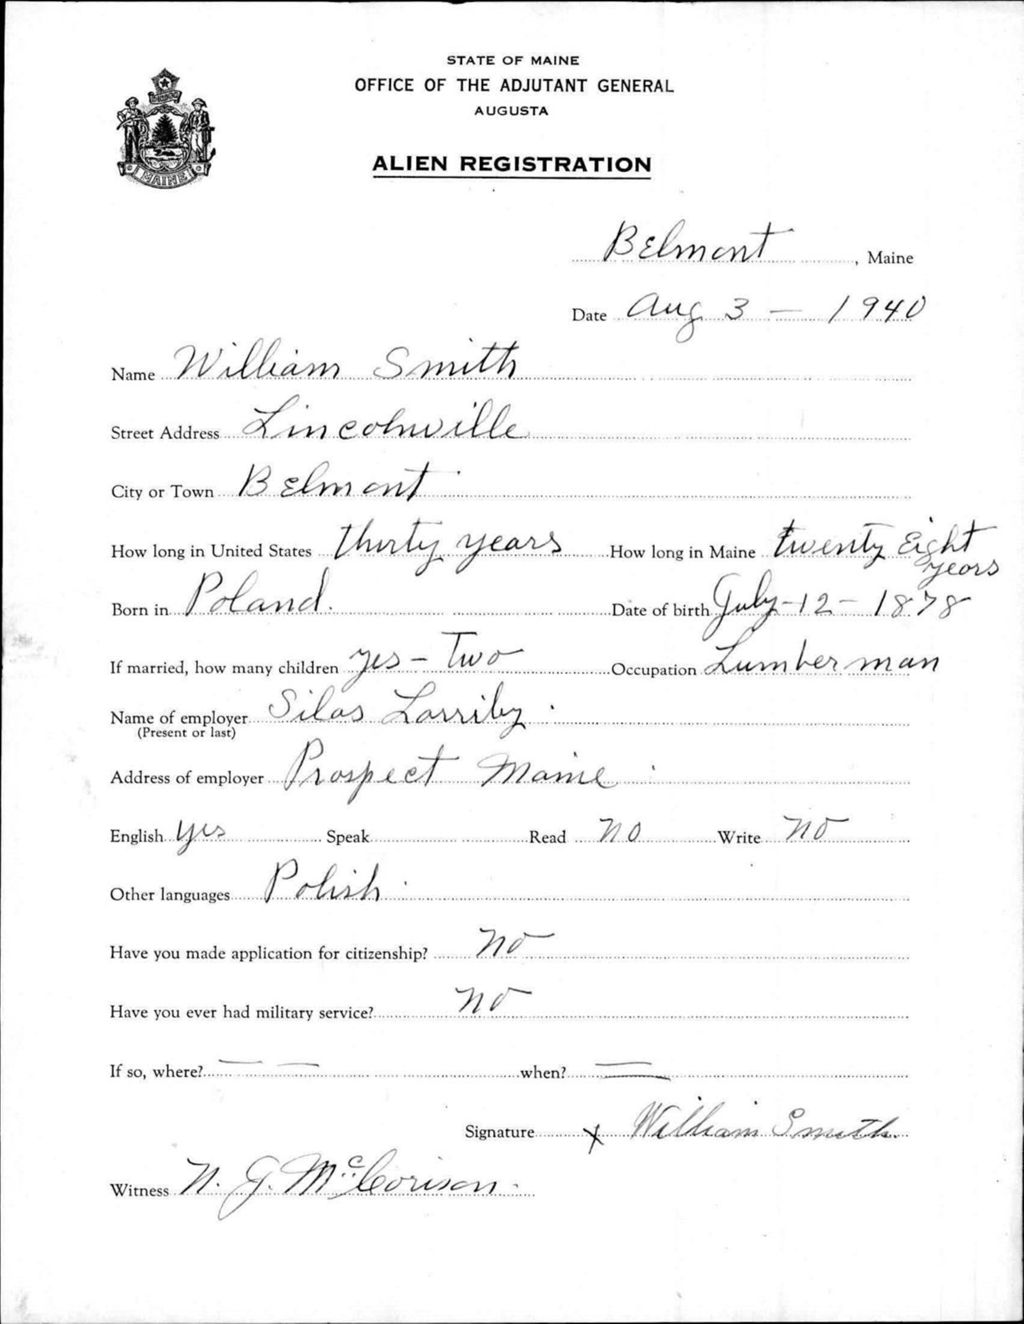 STATE OF MAINE
OFFICE OF THE ADJUTANT GENERAL
AUGUSTA
ALIEN REGISTRATION
MAINE
Belmont, Maine
Date Aug 3 — 1940
Name William Smith
Street Address Lincolnville
City or Town Belmont
How long in United States thirty years How long in Maine twenty Eight years
Born in Poland. Date of birth July-12-1878
If married, how many children yes - Two Occupation Lumber man
Name of employer Silas Larriby
(Present or last)
Address of employer Prospect Maine
English yes Speak Read no Write no
Other languages Polish
Have you made application for citizenship? no
Have you ever had military service? no
If so, where? — — when? —
Signature x William Smith.
Witness N. J. McCorison.